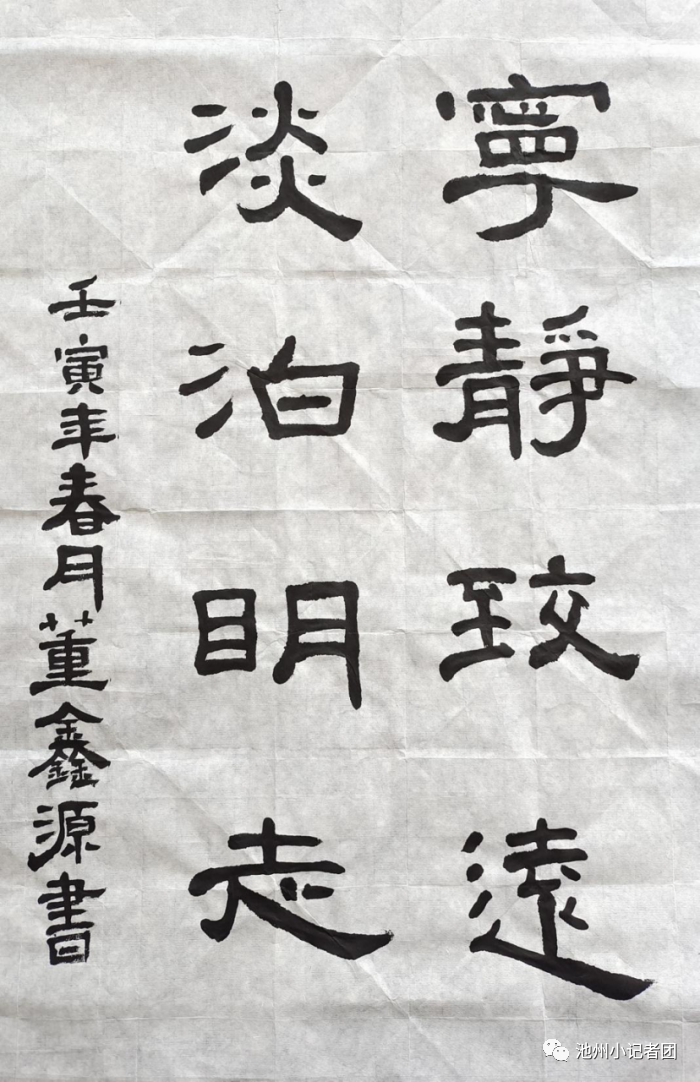 寧静致遠
淡泊明志
壬寅年春月董鑫源書
池州小记者团